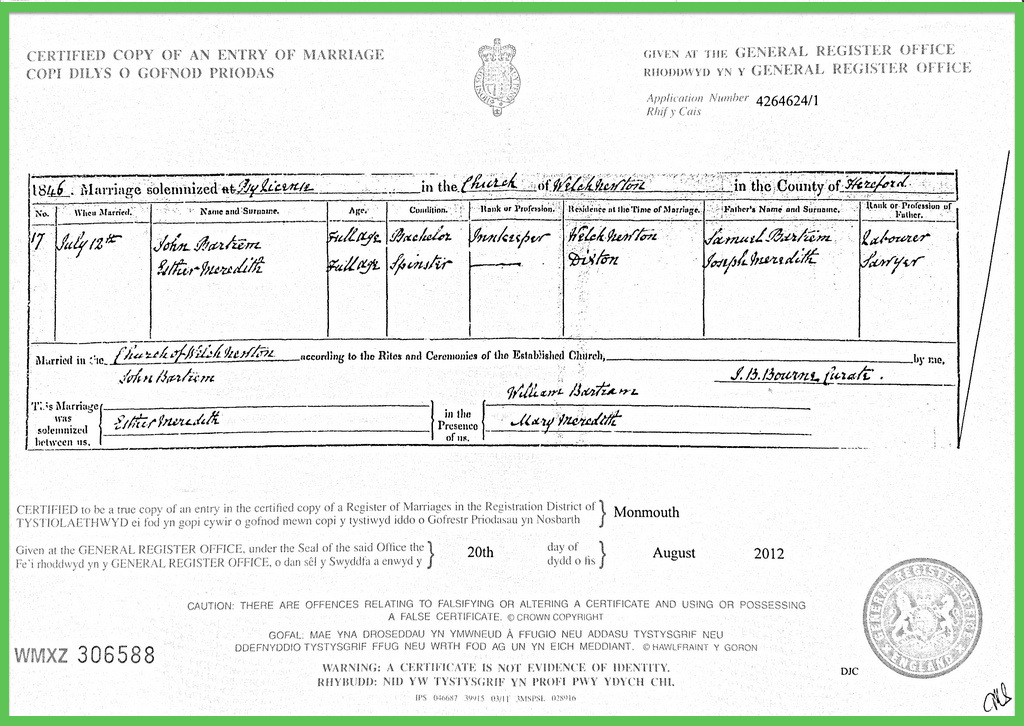 CERTIFIED COPY OF AN ENTRY OF MARRIAGE
COPI DILYS O GOFNOD PRIODAS
GIVEN AT THE GENERAL REGISTER OFFICE
RHODDWYD YN Y GENERAL REGISTER OFFICE
Application Number 4264624/1
Rhif y Cais
1846. Marriage solemnized at By License in the Church of Welch Newton in the County of Hereford.
No. When Married. Name and Surname. Age. Condition. Rank or Profession. Residence at the Time of Marriage. Father's Name and Surname. Rank or Profession of Father.
17 July 12th John Bartrem Full age Bachelor Innkeeper Welch Newton Samuel Bartrem Labourer
Esther Meredith Full age Spinster Dixton Joseph Meredith Sawyer
Married in the Church of Welch Newton according to the Rites and Ceremonies of the Established Church, by me,
John Bartrem
J. B. Bourne Curate.
William Bartram
This Marriage was solemnized between us, Esther Meredith in the Presence of us, Mary Meredith
CERTIFIED to be a true copy of an entry in the certified copy of a Register of Marriages in the Registration District of
TYSTIOLAETHWYD ei fod yn gopi cywir o gofnod mewn copi y tystiwyd iddo o Gofrestr Priodasau yn Nosbarth
Monmouth
Given at the GENERAL REGISTER OFFICE, under the Seal of the said Office the 20th day of August 2012
Fe'i rhoddwyd yn y GENERAL REGISTER OFFICE, o dan sêl y Swyddfa a enwyd y dydd o fis
CAUTION: THERE ARE OFFENCES RELATING TO FALSIFYING OR ALTERING A CERTIFICATE AND USING OR POSSESSING
A FALSE CERTIFICATE. © CROWN COPYRIGHT
GOFAL: MAE YNA DROSEDDAU YN YMWNEUD Â FFUGIO NEU ADDASU TYSTYSGRIF NEU
DDEFNYDDIO TYSTYSGRIF FFUG NEU WRTH FOD AG UN YN EICH MEDDIANT. © HAWLFRAINT Y GORON
WMXZ 306588
WARNING: A CERTIFICATE IS NOT EVIDENCE OF IDENTITY.
RHYBUDD: NID YW TYSTYSGRIF YN PROFI PWY YDYCH CHI.
IPS 046687 39915 03/11 3MSPSL 028916
DJC
GENERAL REGISTER OFFICE
ENGLAND